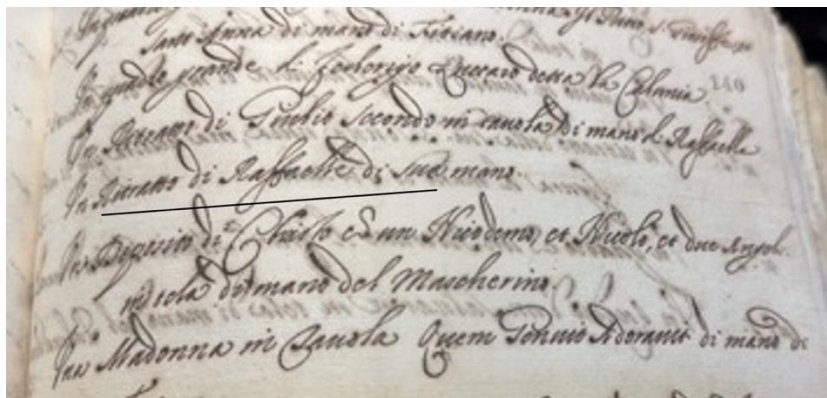 Sant'Anna di mano di Titiano.
Un quadro grande di Federigo Zuccaro detta la Calunia
Un Ritratto di Giulio Secondo in tavola di mano di Raffaelle
Un Ritratto di Raffaelle di sua mano.
Un Deposito di Christo co un Nicodemo, et Nicolò, et due Angeli
in tela di mano del Mascherino.
Una Madonna in Tavola Quem Genuit Adoravit di mano di